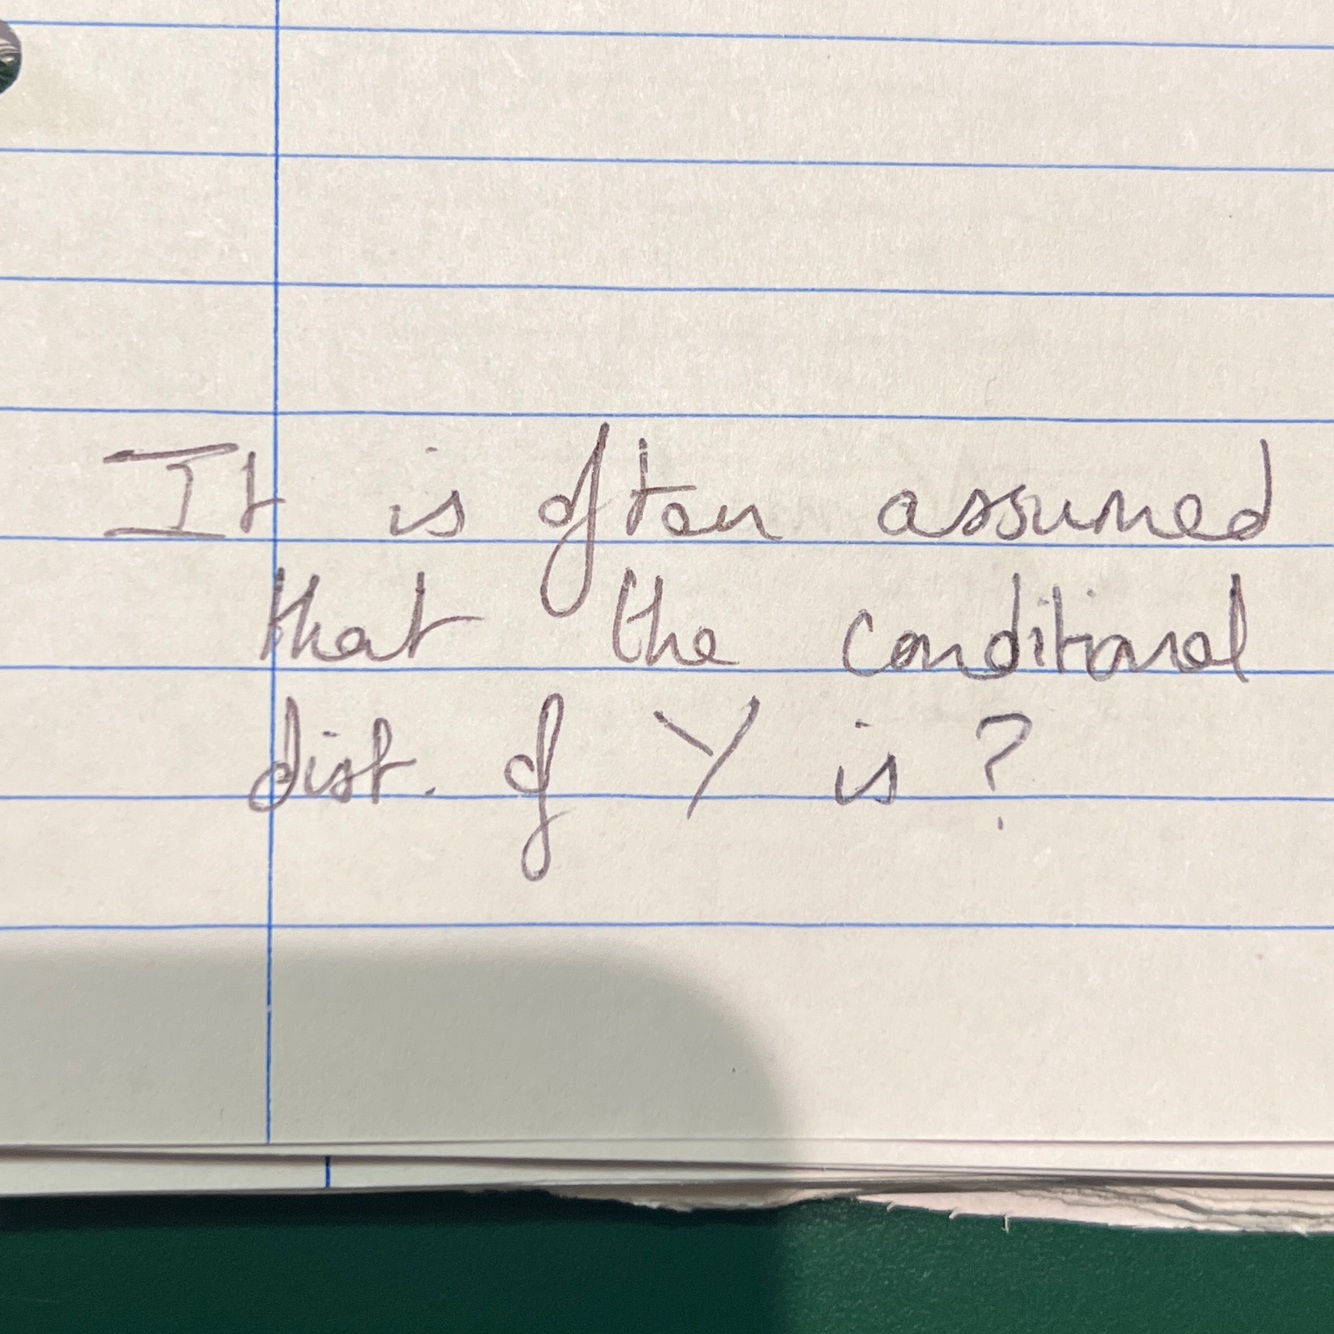 It is often assumed
that the conditional
dist. of Y is ?